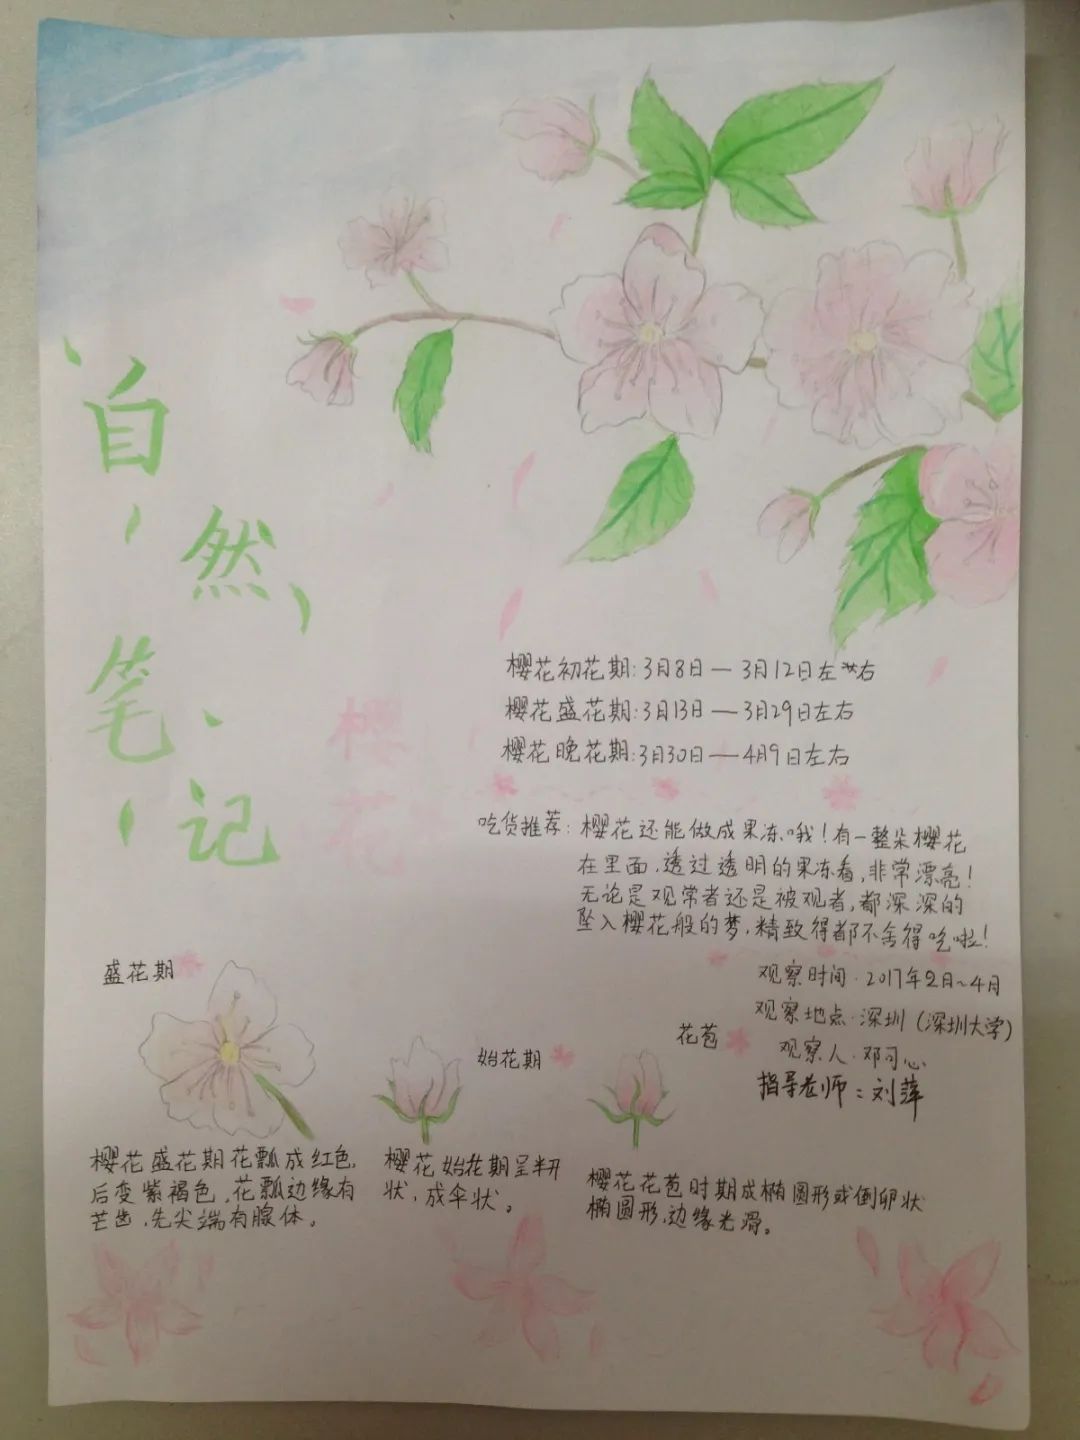 自然笔记
樱花
樱花初花期:3月8日—3月12日左右
樱花盛花期:3月13日—3月29日左右
樱花晚花期:3月30日—4月9日左右
吃货推荐:樱花还能做成果冻哦!有一整朵樱花
在里面,透过透明的果冻看,非常漂亮!
无论是观常者还是被观者,都深深的
坠入樱花般的梦,精致得都不舍得吃啦!
观察时间:2017年2月~4月
观察地点:深圳(深圳大学)
观察人:邓可心
指导老师:刘萍
盛花期
樱花盛花期花瓢成红色,
后变紫褐色,花瓢边缘有
芒齿,先尖端有腺体。
始花期
樱花始花期呈半开
状,成伞状。
花苞
樱花花苞时期成椭圆形或倒卵状
椭圆形,边缘光滑。